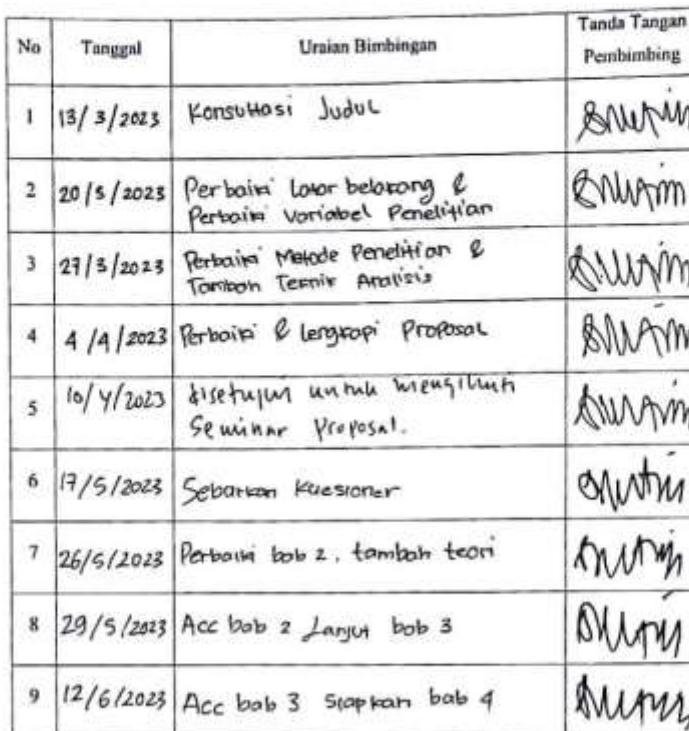 No Tanggal Uraian Bimbingan Tanda Tangan Pembimbing
1 13/3/2023 Konsultasi Judul
2 20/3/2023 Perbaiki Latar belakang &
Perbaiki Variabel Penelitian
3 27/3/2023 Perbaiki Metode Penelitian &
Tambah Teknik Analisis
4 4/4/2023 Perbaiki & lengkapi Proposal
5 10/4/2023 disetujui untuk mengikuti
Seminar Proposal.
6 17/5/2023 Sebarkan Kuesioner
7 26/5/2023 Perbaiki bab 2, tambah teori
8 29/5/2023 Acc bab 2 Lanjut bab 3
9 12/6/2023 Acc bab 3 Siapkan bab 4